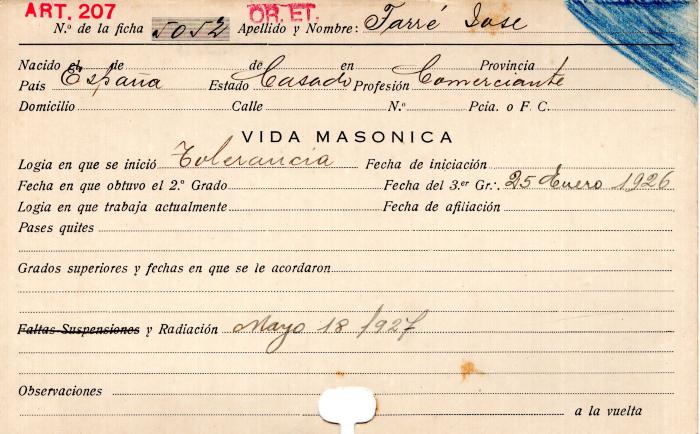 ART. 207 OR. ET.
N.º de la ficha 5052 Apellido y Nombre: Farré Jose
Nacido el de de en Provincia
País España Estado Casado Profesión Comerciante
Domicilio Calle N.º Pcia. o F. C.
VIDA MASONICA
Logia en que se inició Tolerancia Fecha de iniciación
Fecha en que obtuvo el 2.º Grado Fecha del 3.er Gr.·. 25 Enero 1926
Logia en que trabaja actualmente Fecha de afiliación
Pases quites
Grados superiores y fechas en que se le acordaron
Faltas-Suspensiones y Radiación Mayo 18/927
Observaciones
a la vuelta